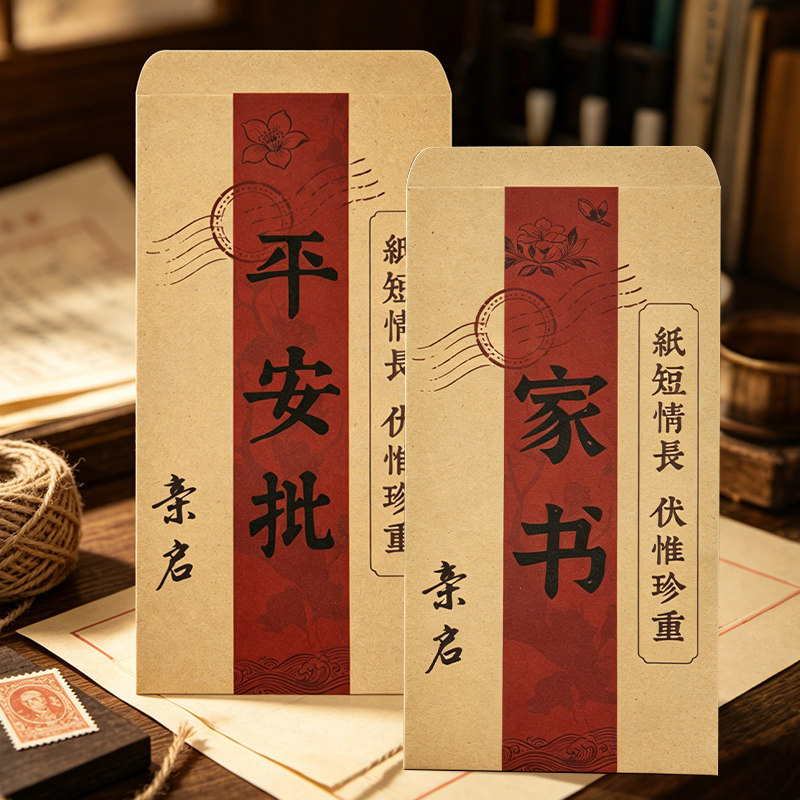 紙短情長 伏惟珍重
平安批
亲启
紙短情長 伏惟珍重
家书
亲启